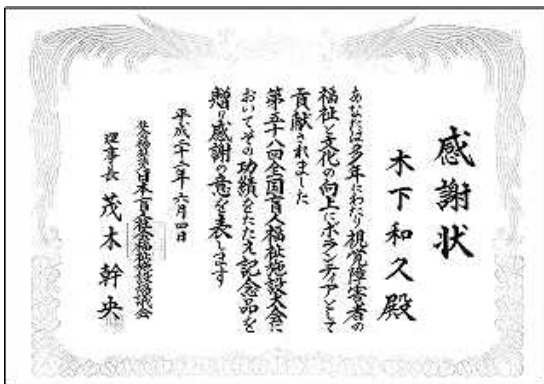 感謝状
木下和久殿
あなたは多年にわたり視覚障害者の
福祉と文化の向上にボランティアとして
貢献されました
第五十八回全国盲人福祉施設大会に
おいてその功績をたたえ記念品を
贈り感謝の意を表します
平成二十二年六月四日
社会福祉法人日本盲人社会福祉施設協議会
理事長 茂木幹央